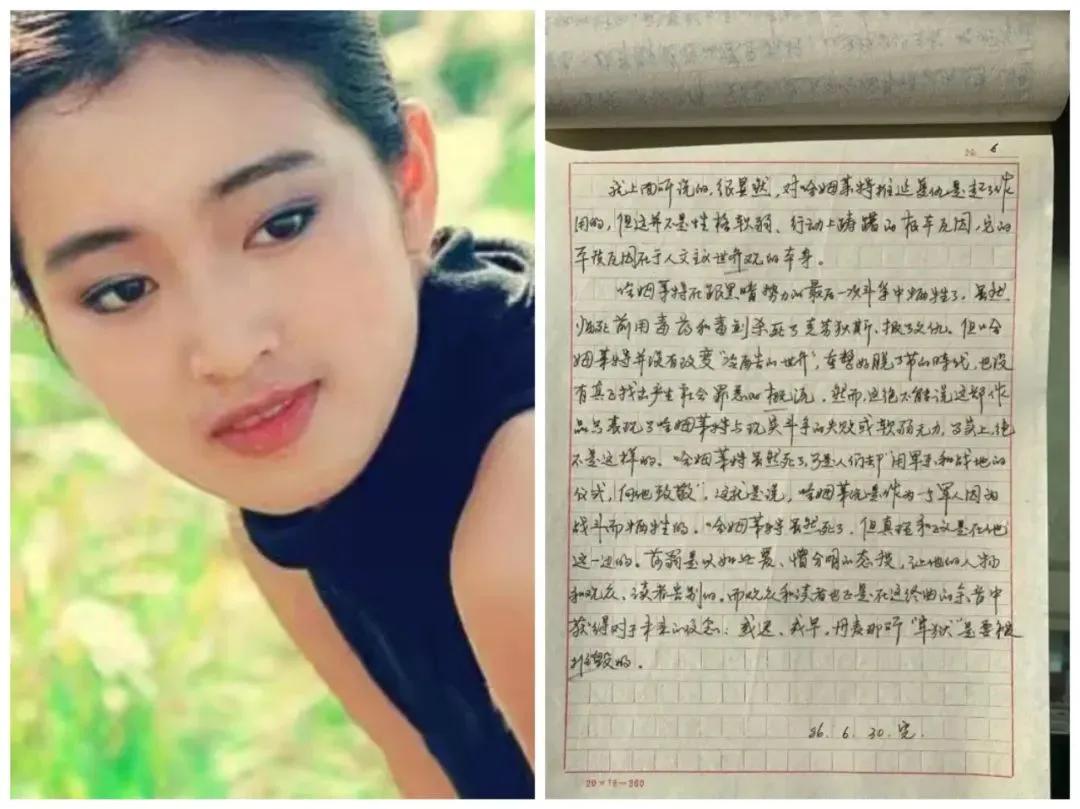 26 6
我上面所说的，很显然，对哈姆莱特推延复仇是起了作
用的，但这并不是性格软弱、行动上踌躇的根本原因，它的
本质原因在于人文主义世界观的本身。
哈姆莱特在跟黑暗势力的最后一次斗争中牺牲了，虽然
临死前用毒药和毒剑杀死了克劳狄斯，报了父仇。但哈
姆莱特并没有改变“冷酷的世界”，重整好脱了节的时代，也没
有真正找出产生社会罪恶的根源。然而，这绝不能说这部作
品只表现了哈姆莱特与现实斗争的失败或软弱无力，事实上，绝
不是这样的。哈姆莱特虽然死了，可是人们却“用军乐和战地的
仪式，向他致敬”。这就是说，哈姆莱特是作为一个军人因为
战斗而牺牲的。哈姆莱特虽然死了，但真理和正义是在他
这一边的。莎翁是以如此爱、憎分明的态度，让他的人物
和观众、读者告别的。而观众和读者也正是在这终曲的余音中
获得对于未来的信念：或迟、或早，丹麦那所“牢狱”是要被
摧毁的。
86.6.30.完.
20×18=360